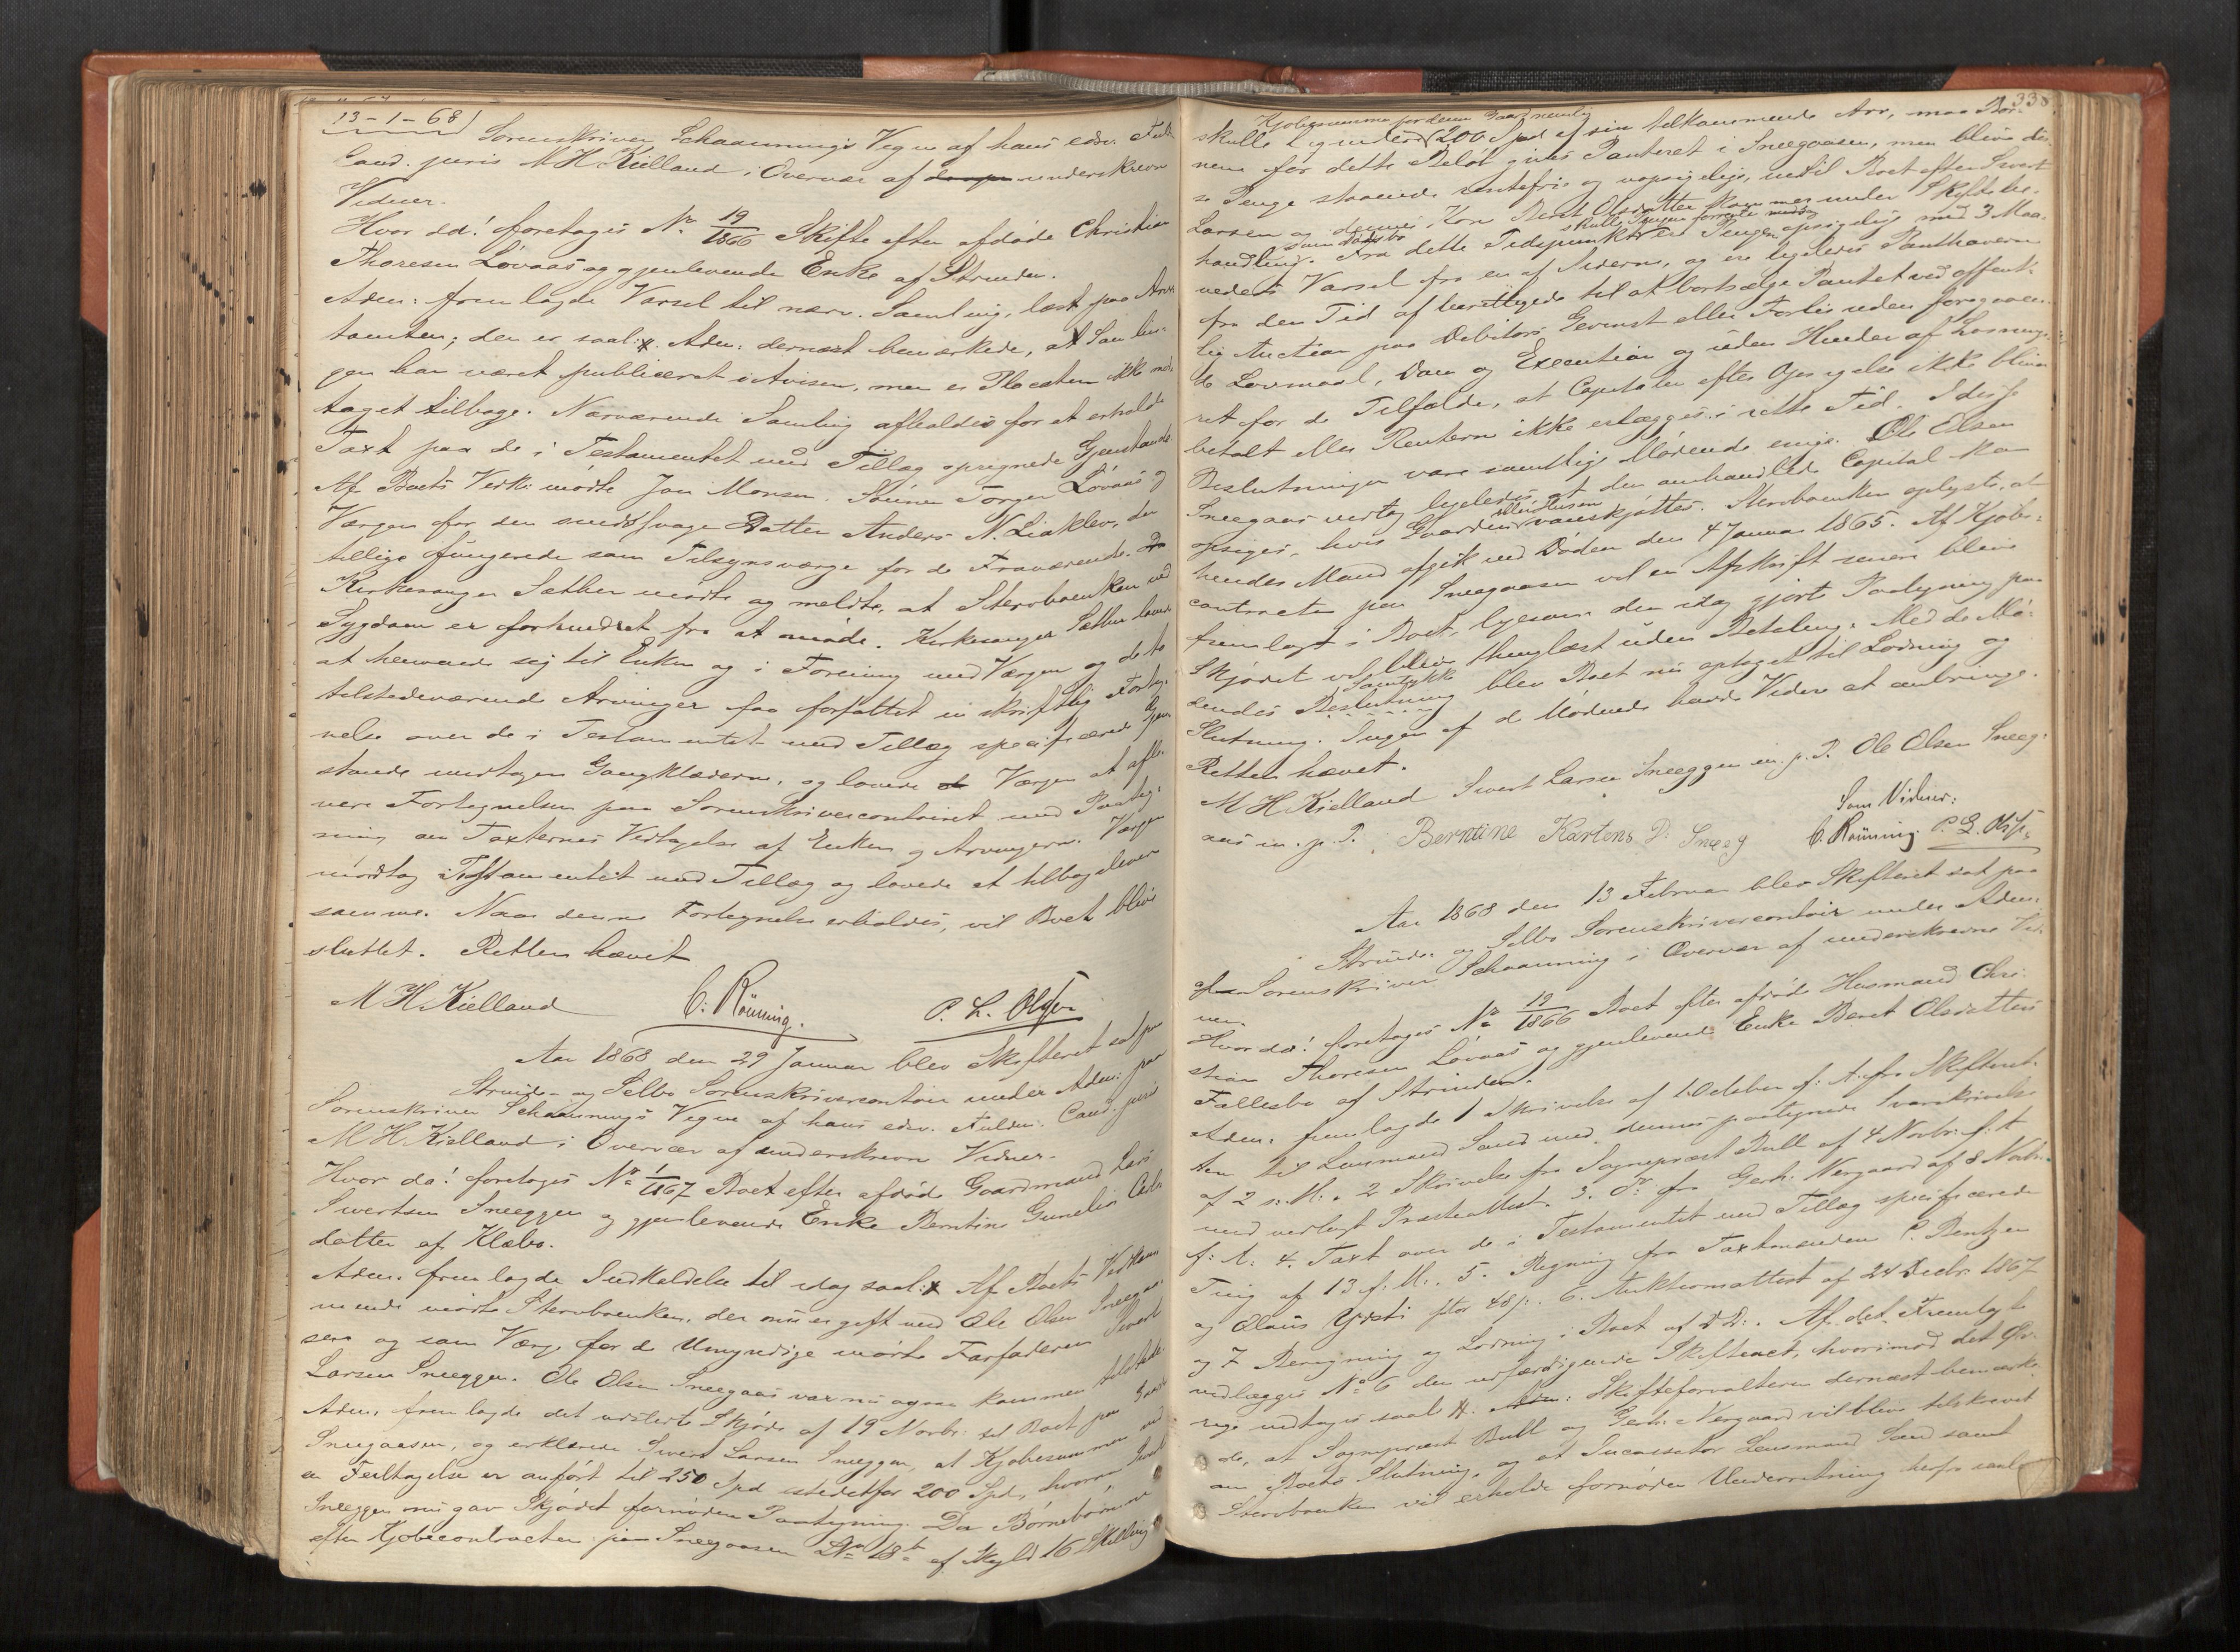 13-1-68)
Sorenskriver Schaannings Vegne af hans edsv. Fuld
Cand. juris M H Kielland i Overvær af underskrevne
Vidner.
Hvor da! foretoges No 19/1866 Skifte efter afdøde Christian
Thoresen Løvaas og gjenlevende Enke af Strinden.
Adm: fremlagde Varsel til nærv. Samling, læst paa Arve
tomten; den er saal: #. Adm: dernæst bemærkede, at Samlin-
gen har været publiceret i Avisen, men er Placaten ikke mod-
taget tilbage. Nærværende Samling afholdes for at erholde
Taxt paa de i Testamentet med Tillæg opregnede Gjenstande
Af Boets Vedk: mødte Jon Monsen. Sønnen Torger Løvaas og
Værgen for den sindssvage Datter Anders N. Liaklev, der
tillige fungerede som Tilsynsværge for de Fraværende.
Kirkesanger Sæther mødte og meldte, at Stervboenken ved
Sygdom er forhindret fra at møde. Kirkesanger Sæther lovede
at henvende sig til Enken og i Forening med Værgen og de to
tilstedeværende Arvinger faa forfattet en skriftlig Forteg-
nelse over de i Testamentet med Tillæg specificerede Gjen
stande undtagen Gangklæderne, og lovede Værgen at afle-
vere Fortegnelsen paa Sorenskrivercontoiret med Paateg-
ning om Taxternes Vedtagelse af Enken og Arvingerne. Værgen
modtog Testamentet med Tillæg og lovede at tilbagelevere
samme. Naar denne Fortegnelse erholdes, vil Boet blive
sluttet. Retten hævet
M H Kielland C. Rönning. P. L. Olsen
Aar 1868 den 29 Januar blev Skifteret sat paa
Strinde- og Selbo Sorenskrivercontoir under Adm: paa
Sorenskriver Schaannings Vegne af hans edsv. Fuldm: Cand. juris
M H Kielland i Overvær af underskrevne Vidner.
Hvor da! foretoges No 1/1867 Boet efter afdøde Gaardmand Lars
Sivertsen Sneeggen og gjenlevende Enke Berntine Gunelie Carls
datter af Klæbo.
Adm. fremlagde Indkaldelse til idag saal: # Af Boets Vedkom
mende mødte Stervboenken, der nu er gift med Ole Olsen Sneegaa-
sen og som Værge for de Umyndige mødte Farfaderen Sivert
Larsen Sneeggen. Ole Olsen Sneegaas var nu ogsaa kommen tilstede.
Adm. fremlagde det udstedte Skjøde af 19 Novbr: til Boet paa Gaarden
Sneegaasen, og erklærede Sivert Larsen Sneeggen, at Kjøbesummen ved
en Feiltagelse er anført til 250 Spd istedetfor 200 Spd, hvorom Sivert
Sneeggen nu gav Skjødet fornøden Paategning. Da Børnebørnene
efter Kjøbecontracten paa Sneegaasen No 18b af Skyld 16 Skilling
338
Kjøbesumma for denne Gaard nemlig
skulle ligeunder 200 Spd af sin tilkommende Arv, maa Bør-
nene for dette Beløb gives Panteret i Sneegaasen, men blive dis-
se Penge staaende rentefrie og uopsigelige, indtil Boet efter Sivert
Larsen og dennes Kone Beret Olsdatter kommer under Skiftebe-
som Dødsbo skulle Pengene forrentes med
handling. Fra dette Tidspunkt ere Pengene opsigelig med 3 Maa-
neders Varsel fra en af Siderne, og ere ligeledes Panthaverne
fra den Tid af berettigede til at bortsælge Pantet ved offent-
lig Auction paa Debitors Gevinst eller Forlis uden foregaaen-
de Lovmaal, Dom og Execution og uden Hinder af Løsnings-
ret for de Tilfælde, at Capitalen efter Opsigelse ikke bliver
betalt eller Renterne ikke erlægges i rette Tid. I disse
Beslutninger vare samtlige Mødende enige. Ole Olsen
Sneegaas vedtog ligeledes, at den omhandlede Capital kan
opsiges, hvis Gaarden vanskjøttes. Stervboenken oplyste, at
hendes Mand afgik ved Døden den 4 Januar 1865. Af Kjøbe-
contracten paa Sneegaasen vil en Afskrift senere blive
fremlagt i Boet, ligesom den idag gjorte Paategning paa
Skjødet vil blive thinglæst uden Betaling. Med de Mø-
Samtykke
dendes Beslutning blev Boet nu optaget til Lodning og
Slutning. Ingen af de Mødende havde Videre at anbringe.
Retten hævet.
M H Kielland Sivert Larsen Sneeggen m. p. P. Ole Olsen Sneeg-
aas m. p. P. Berntine Karlens D: Sneeg
Som Vidner:
C. Rönning. P. L. Olsen
Aar 1868 den 13 Februar blev Skifteret sat paa
Strinde- og Selbo Sorenskrivercontoir under Adm:
af Sorenskriver Schaanning i Overvær af underskrevne Vid-
ner.
Hvor da! foretoges No 19/1866 Boet efter afdøde Husmand Chri-
stian Thoresen Løvaas og gjenlevende Enke Beret Olsdatters
Fællesbo af Strinden.
Adm. fremlagde 1 Skrivelse af 1 October f: A: fra Skifteret-
ten til Lensmand Sand med dennes paategnede Svarskrivelse
af 2 s: M:. 2 Skrivelse fra Sognepræst Bull af 4 Novbr: f: A
med vedlagt Præsteattest. 3. Do fra Gerh: Nergaard af 8 Novbr:
f: A: 4. Taxt over de i Testamentet med Tillæg specificerede
Ting af 13 f: M:. 5. Regning fra Taxtmændene C. Bentzen
og Olaus Ydsti stor 48 s:. 6. Auktionsattest af 24 Decbr. 1867
og 7 Beregning og Lodning i Boet af D.D:. Af det Fremlagte
vedlægges No 6 den udfærdigende Skifteact, hvorimod det Øv-
rige indtages saal: #. Skifteforvalteren dernæst bemærke-
de, at Sognepræst Bull og Gerh: Nergaard vil blive tilskrevet
om Boets Slutning, og at Incassator Lensmand Sand samt
Stervboenken vil erholde fornøden Underretning herfra saal: